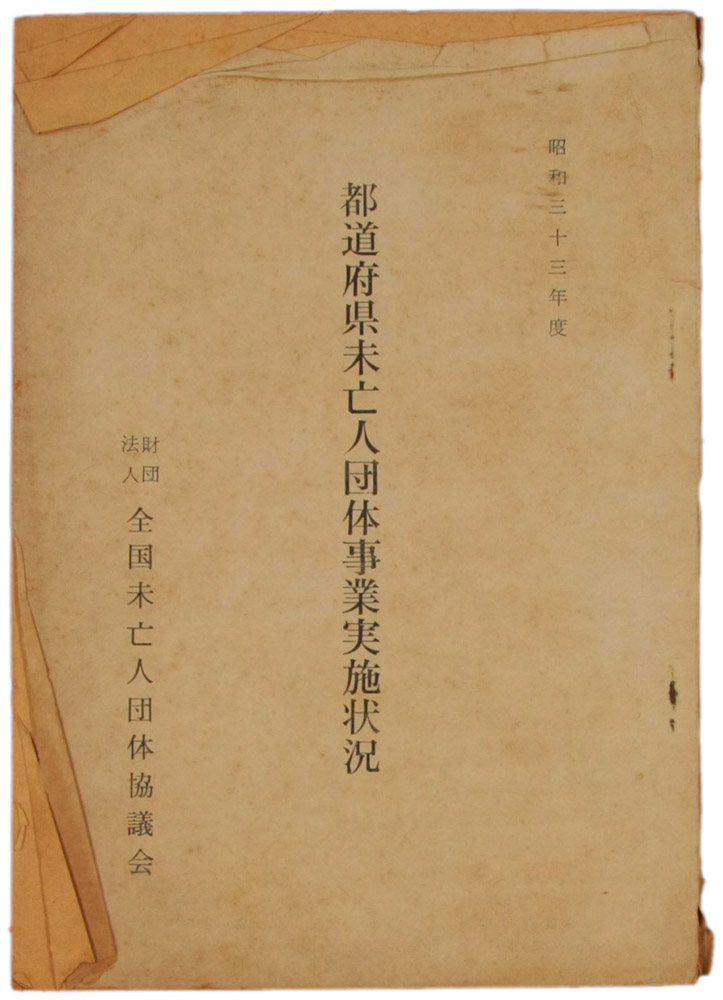 昭和三十三年度
都道府県未亡人団体事業実施状況
財団
法人
全国未亡人団体協議会